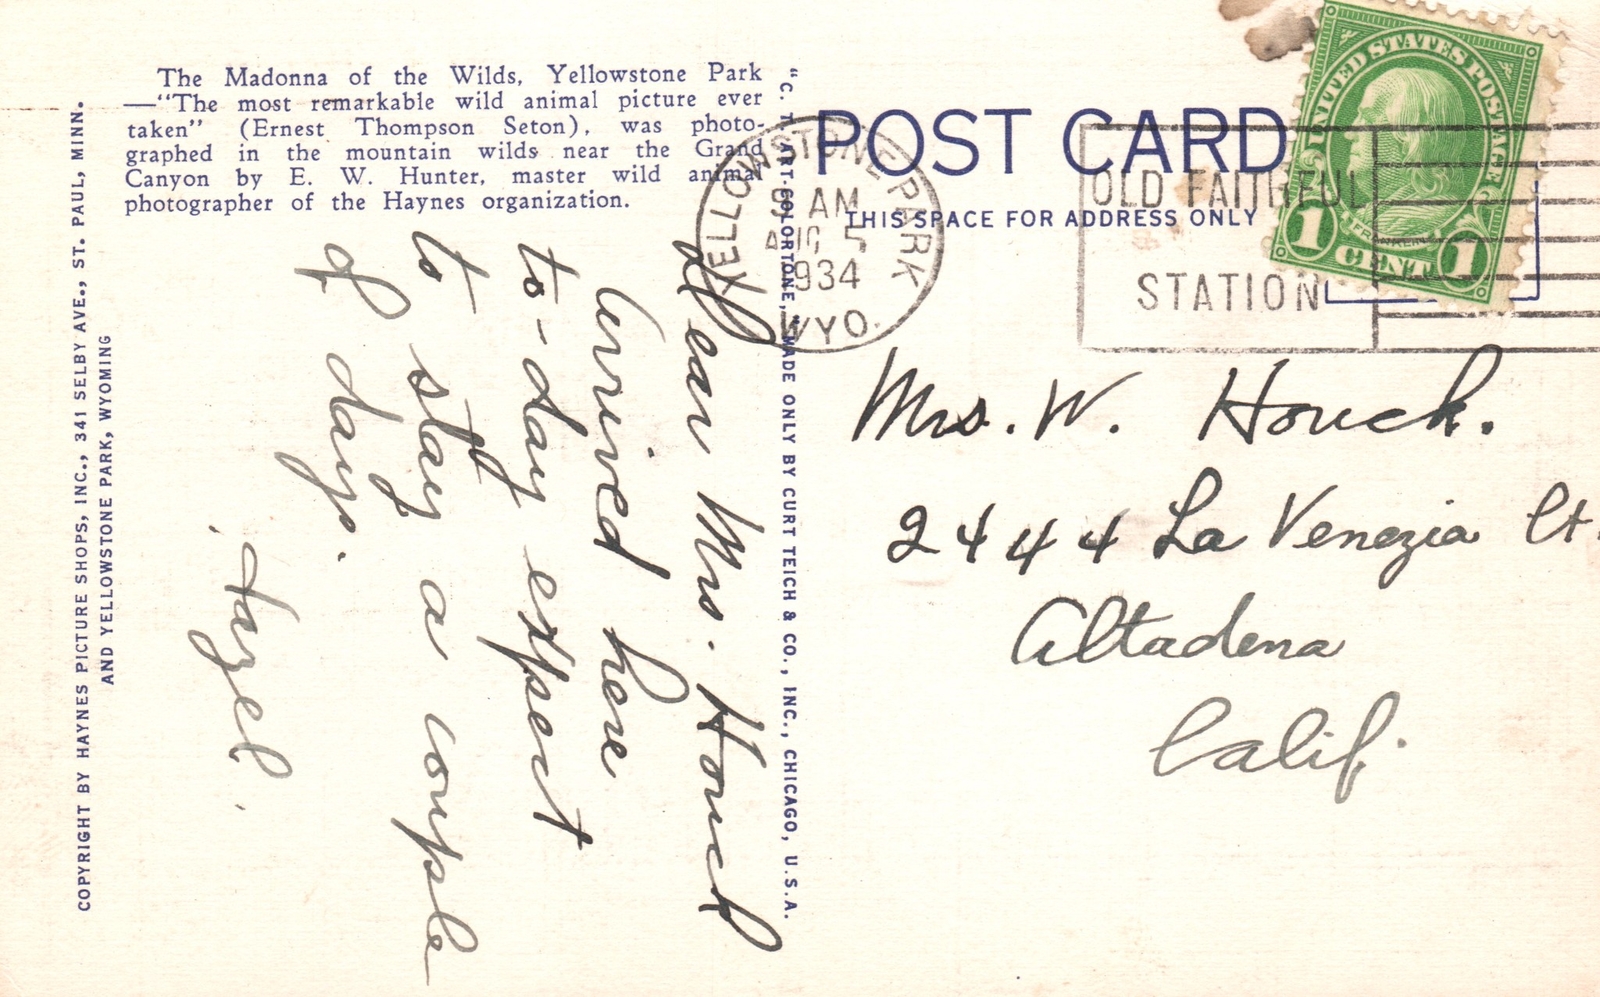 The Madonna of the Wilds, Yellowstone Park
—"The most remarkable wild animal picture ever
taken" (Ernest Thompson Seton), was photo-
graphed in the mountain wilds near the Grand
Canyon by E. W. Hunter, master wild animal
photographer of the Haynes organization.
COPYRIGHT BY HAYNES PICTURE SHOPS, INC., 341 SELBY AVE., ST. PAUL, MINN.
AND YELLOWSTONE PARK, WYOMING
Dear Mrs. Houck
Arrived here
to-day expect
to stay a couple
of days.
Hazel.
"C. T. ART-COLORTONE," MADE ONLY BY CURT TEICH & CO., INC., CHICAGO, U.S.A.
POST CARD
THIS SPACE FOR ADDRESS ONLY
YELLOWSTONE PARK
9 AM
AUG 5
1934
WYO.
OLD FAITHFUL
STATION
UNITED STATES POSTAGE
FRANKLIN
1 CENT 1
Mrs. W. Houck.
2444 La Venezia Ct.
Altadena
Calif.